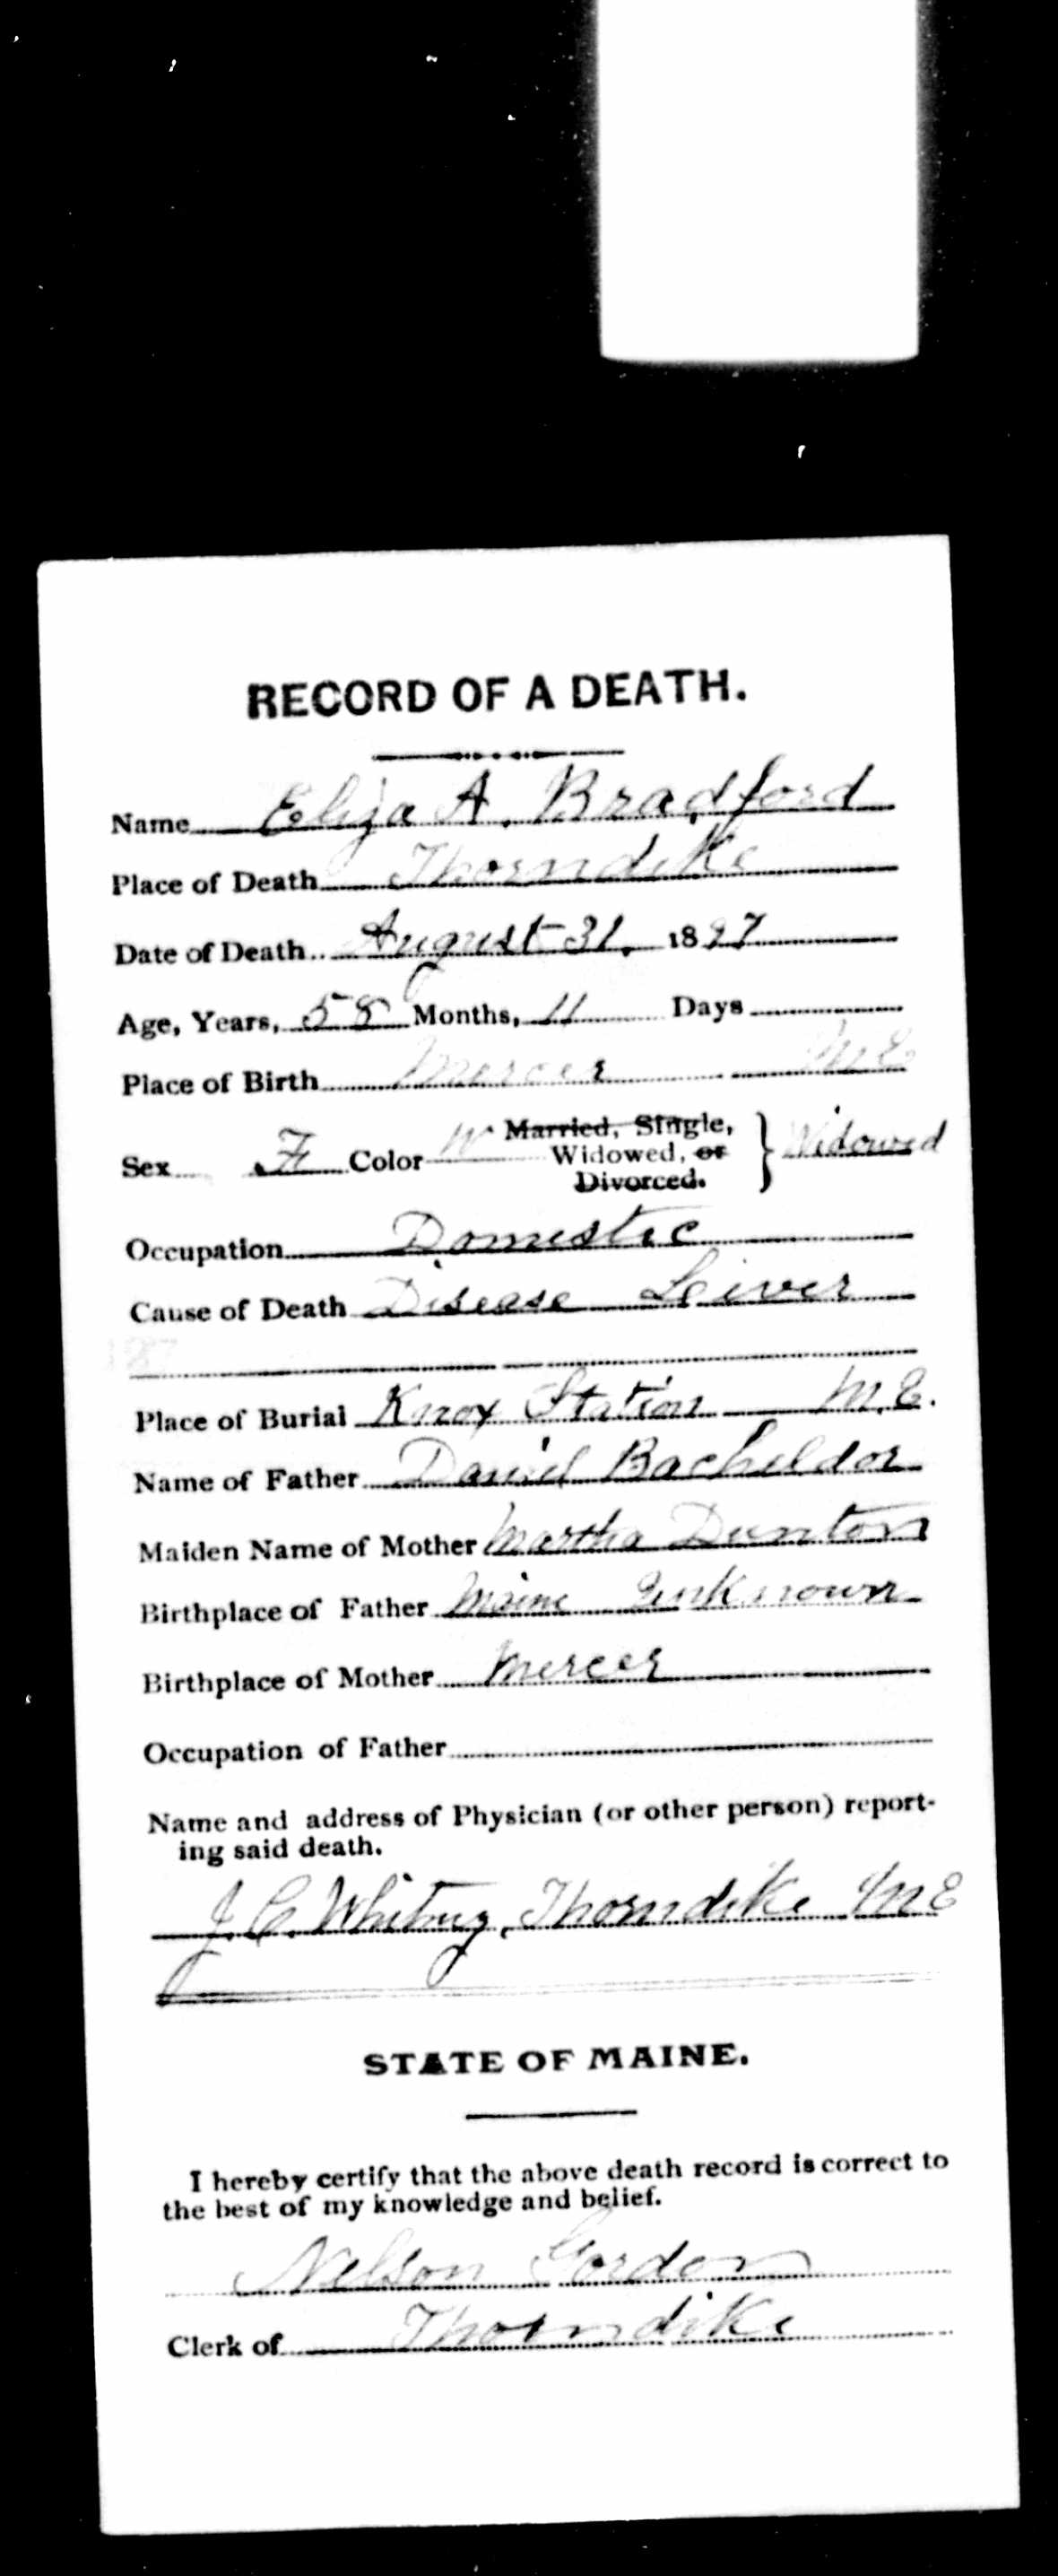 RECORD OF A DEATH.
Name Eliza A. Bradford
Place of Death Thorndike
Date of Death August 31. 1897
Age, Years, 58 Months, 11 Days
Place of Birth Mercer ME
Sex F Color W Married, Single, Widowed, or Divorced. } Widowed
Occupation Domestic
Cause of Death Disease Leiver
Place of Burial Knox Station M.E.
Name of Father Daniel Bacheldor
Maiden Name of Mother Martha Dunton
Birthplace of Father Maine Unknown
Birthplace of Mother Mercer
Occupation of Father
Name and address of Physician (or other person) report-
ing said death.
J. C. Whitney, Thorndike ME
STATE OF MAINE.
I hereby certify that the above death record is correct to
the best of my knowledge and belief.
Nelson Gordon
Clerk of Thorndike